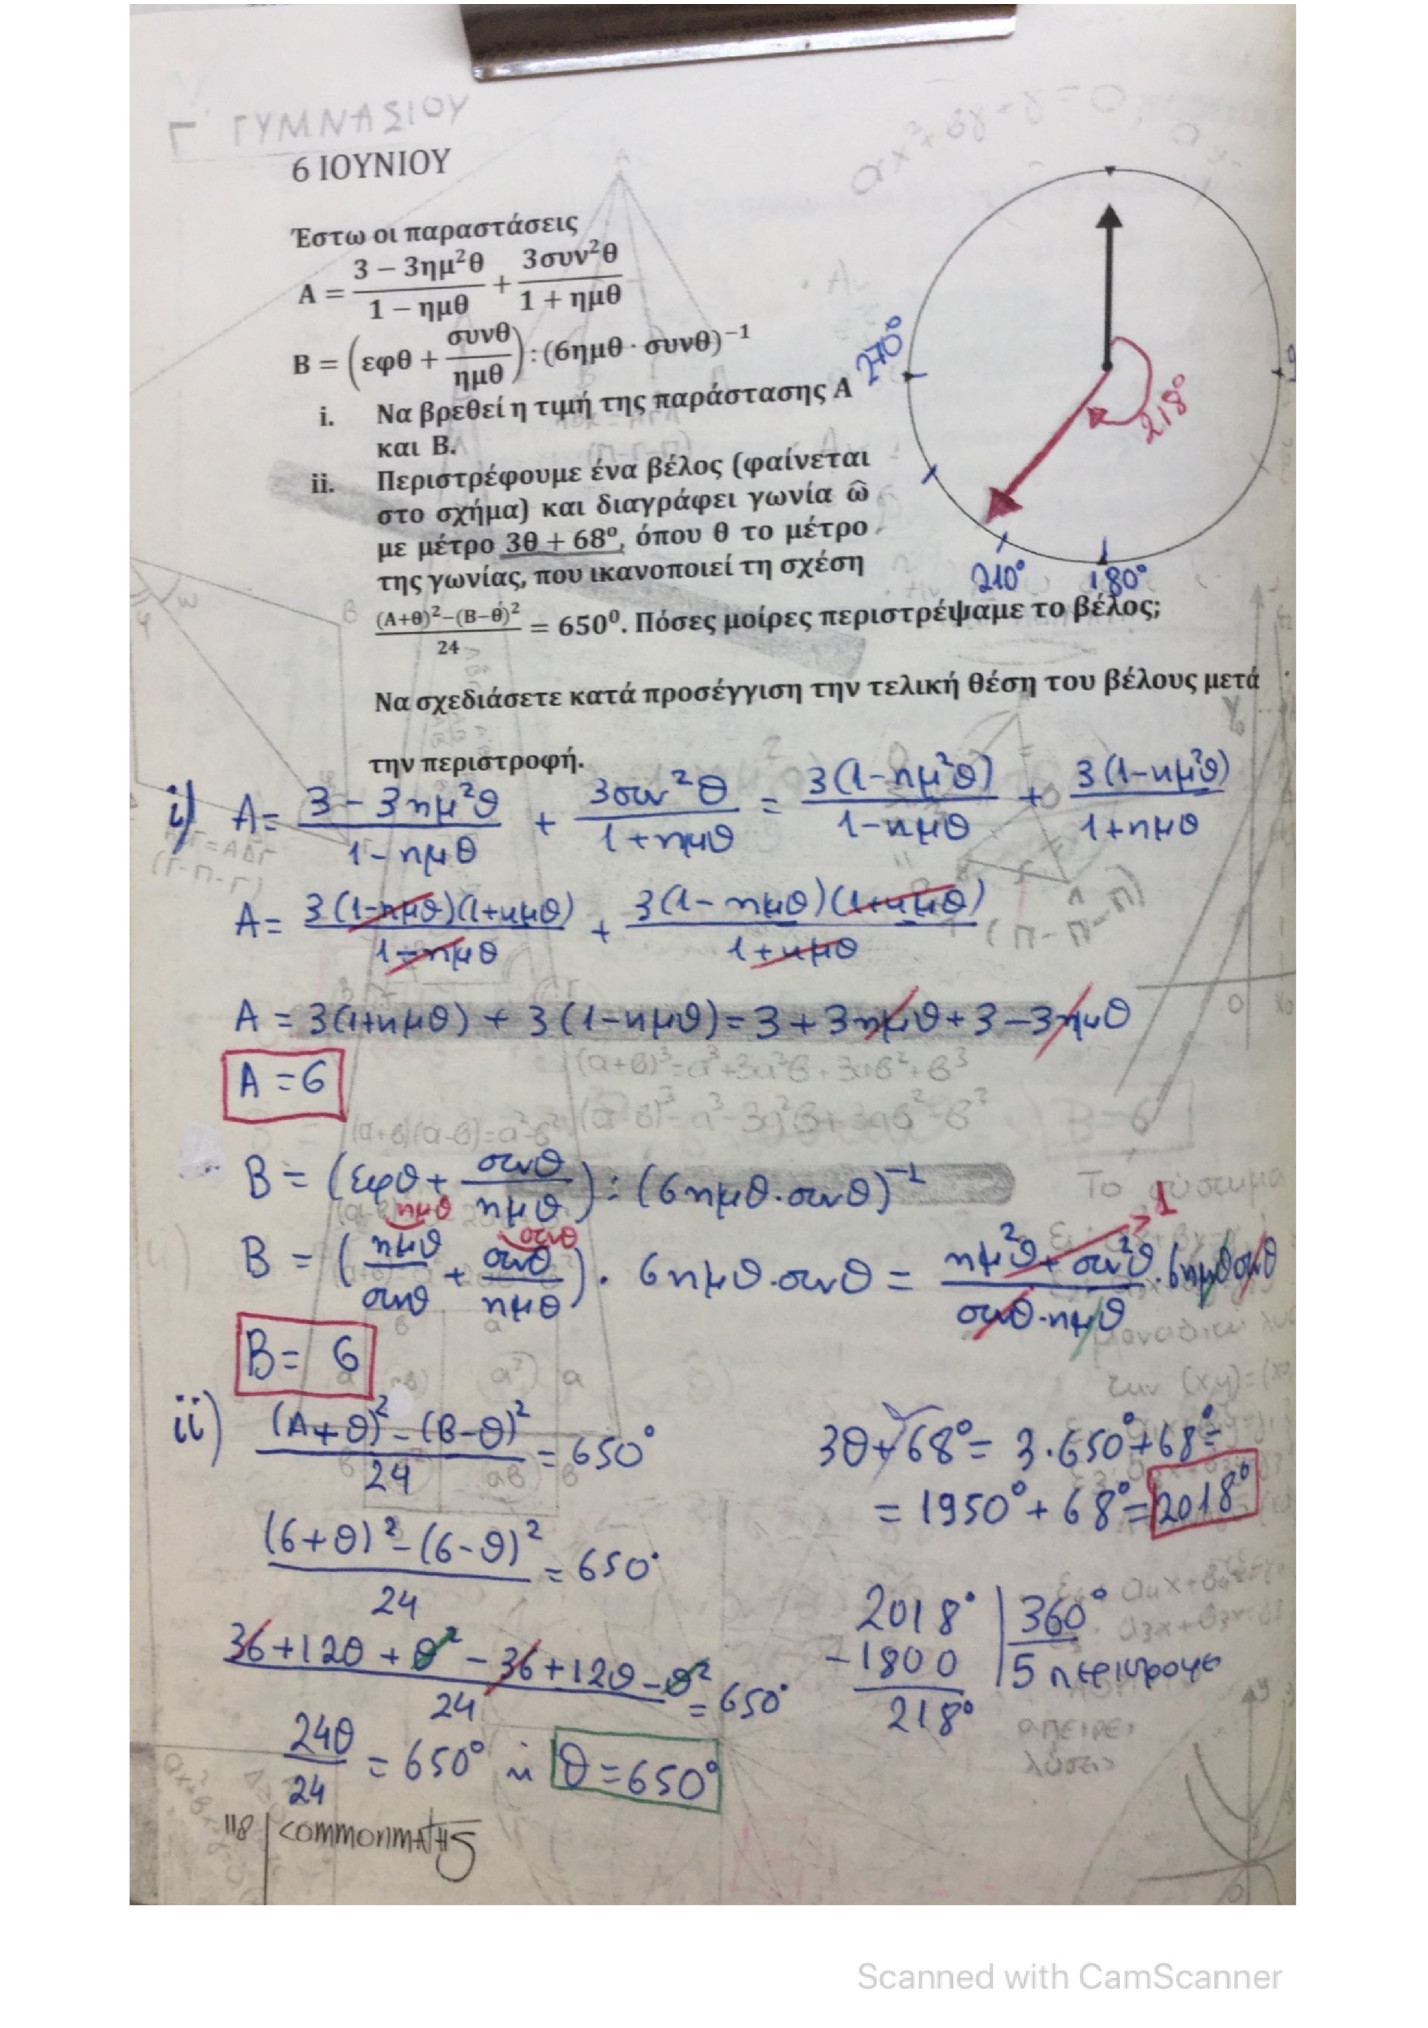 Γ' ΓΥΜΝΑΣΙΟΥ
6 ΙΟΥΝΙΟΥ
Έστω οι παραστάσεις
Α = (3 − 3ημ²θ)/(1 − ημθ) + (3συν²θ)/(1 + ημθ)
Β = (εφθ + συνθ/ημθ) : (6ημθ · συνθ)⁻¹
i. Να βρεθεί η τιμή της παράστασης Α
και Β.
ii. Περιστρέφουμε ένα βέλος (φαίνεται
στο σχήμα) και διαγράφει γωνία ω̂
με μέτρο 3θ + 68°, όπου θ το μέτρο
της γωνίας, που ικανοποιεί τη σχέση
((Α+θ)²−(Β−θ)²)/24 = 650⁰. Πόσες μοίρες περιστρέψαμε το βέλος;
Να σχεδιάσετε κατά προσέγγιση την τελική θέση του βέλους μετά
την περιστροφή.
270°
218°
210°
180°
i) Α = (3 − 3ημ²θ)/(1 − ημθ) + (3συν²θ)/(1+ημθ) = (3(1−ημ²θ))/(1−ημθ) + (3(1−ημ²θ))/(1+ημθ)
Α = (3(1−ημθ)(1+ημθ))/(1−ημθ) + (3(1−ημθ)(1+ημθ))/(1+ημθ)
Α = 3(1+ημθ) + 3(1−ημθ) = 3 + 3ημθ + 3 − 3ημθ
Α = 6
(α+β)³=α³+3α²β+3αβ²+β³
(α+β)(α-β)=α²-β²
Β = (εφθ + συνθ/ημθ) : (6ημθ·συνθ)⁻¹
ημθ συνθ 1
Β = (ημθ/συνθ + συνθ/ημθ) · 6ημθ·συνθ = (ημ²θ + συν²θ)/(συνθ·ημθ) · 6ημθσυνθ
Β = 6
ii) ((Α+θ)² − (Β−θ)²)/24 = 650°
((6+θ)² − (6−θ)²)/24 = 650°
(36+12θ + θ² − 36 + 12θ − θ²)/24 = 650°
24θ/24 = 650° ή θ = 650°
3θ+68° = 3·650°+68° =
= 1950° + 68° = 2018°
2018° | 360°
−1800 | 5 περιστροφές
218°
118 | COMMONMATHS
Το σύστημα
άπειρες
λύσεις
Β=6
Scanned with CamScanner